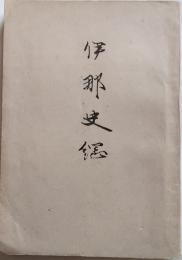 伊那史綱